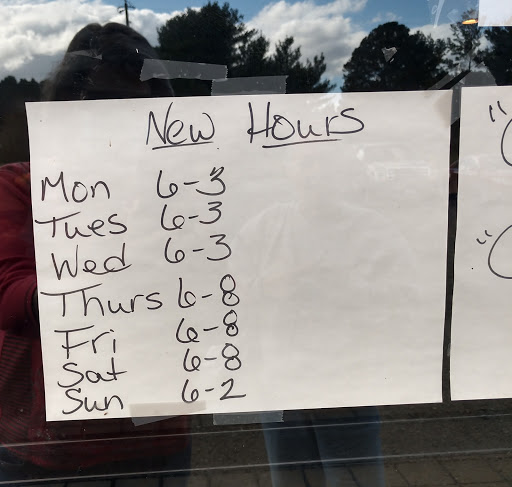 New Hours
Mon 6-3
Tues 6-3
Wed 6-3
Thurs 6-8
Fri 6-8
Sat 6-8
Sun 6-2